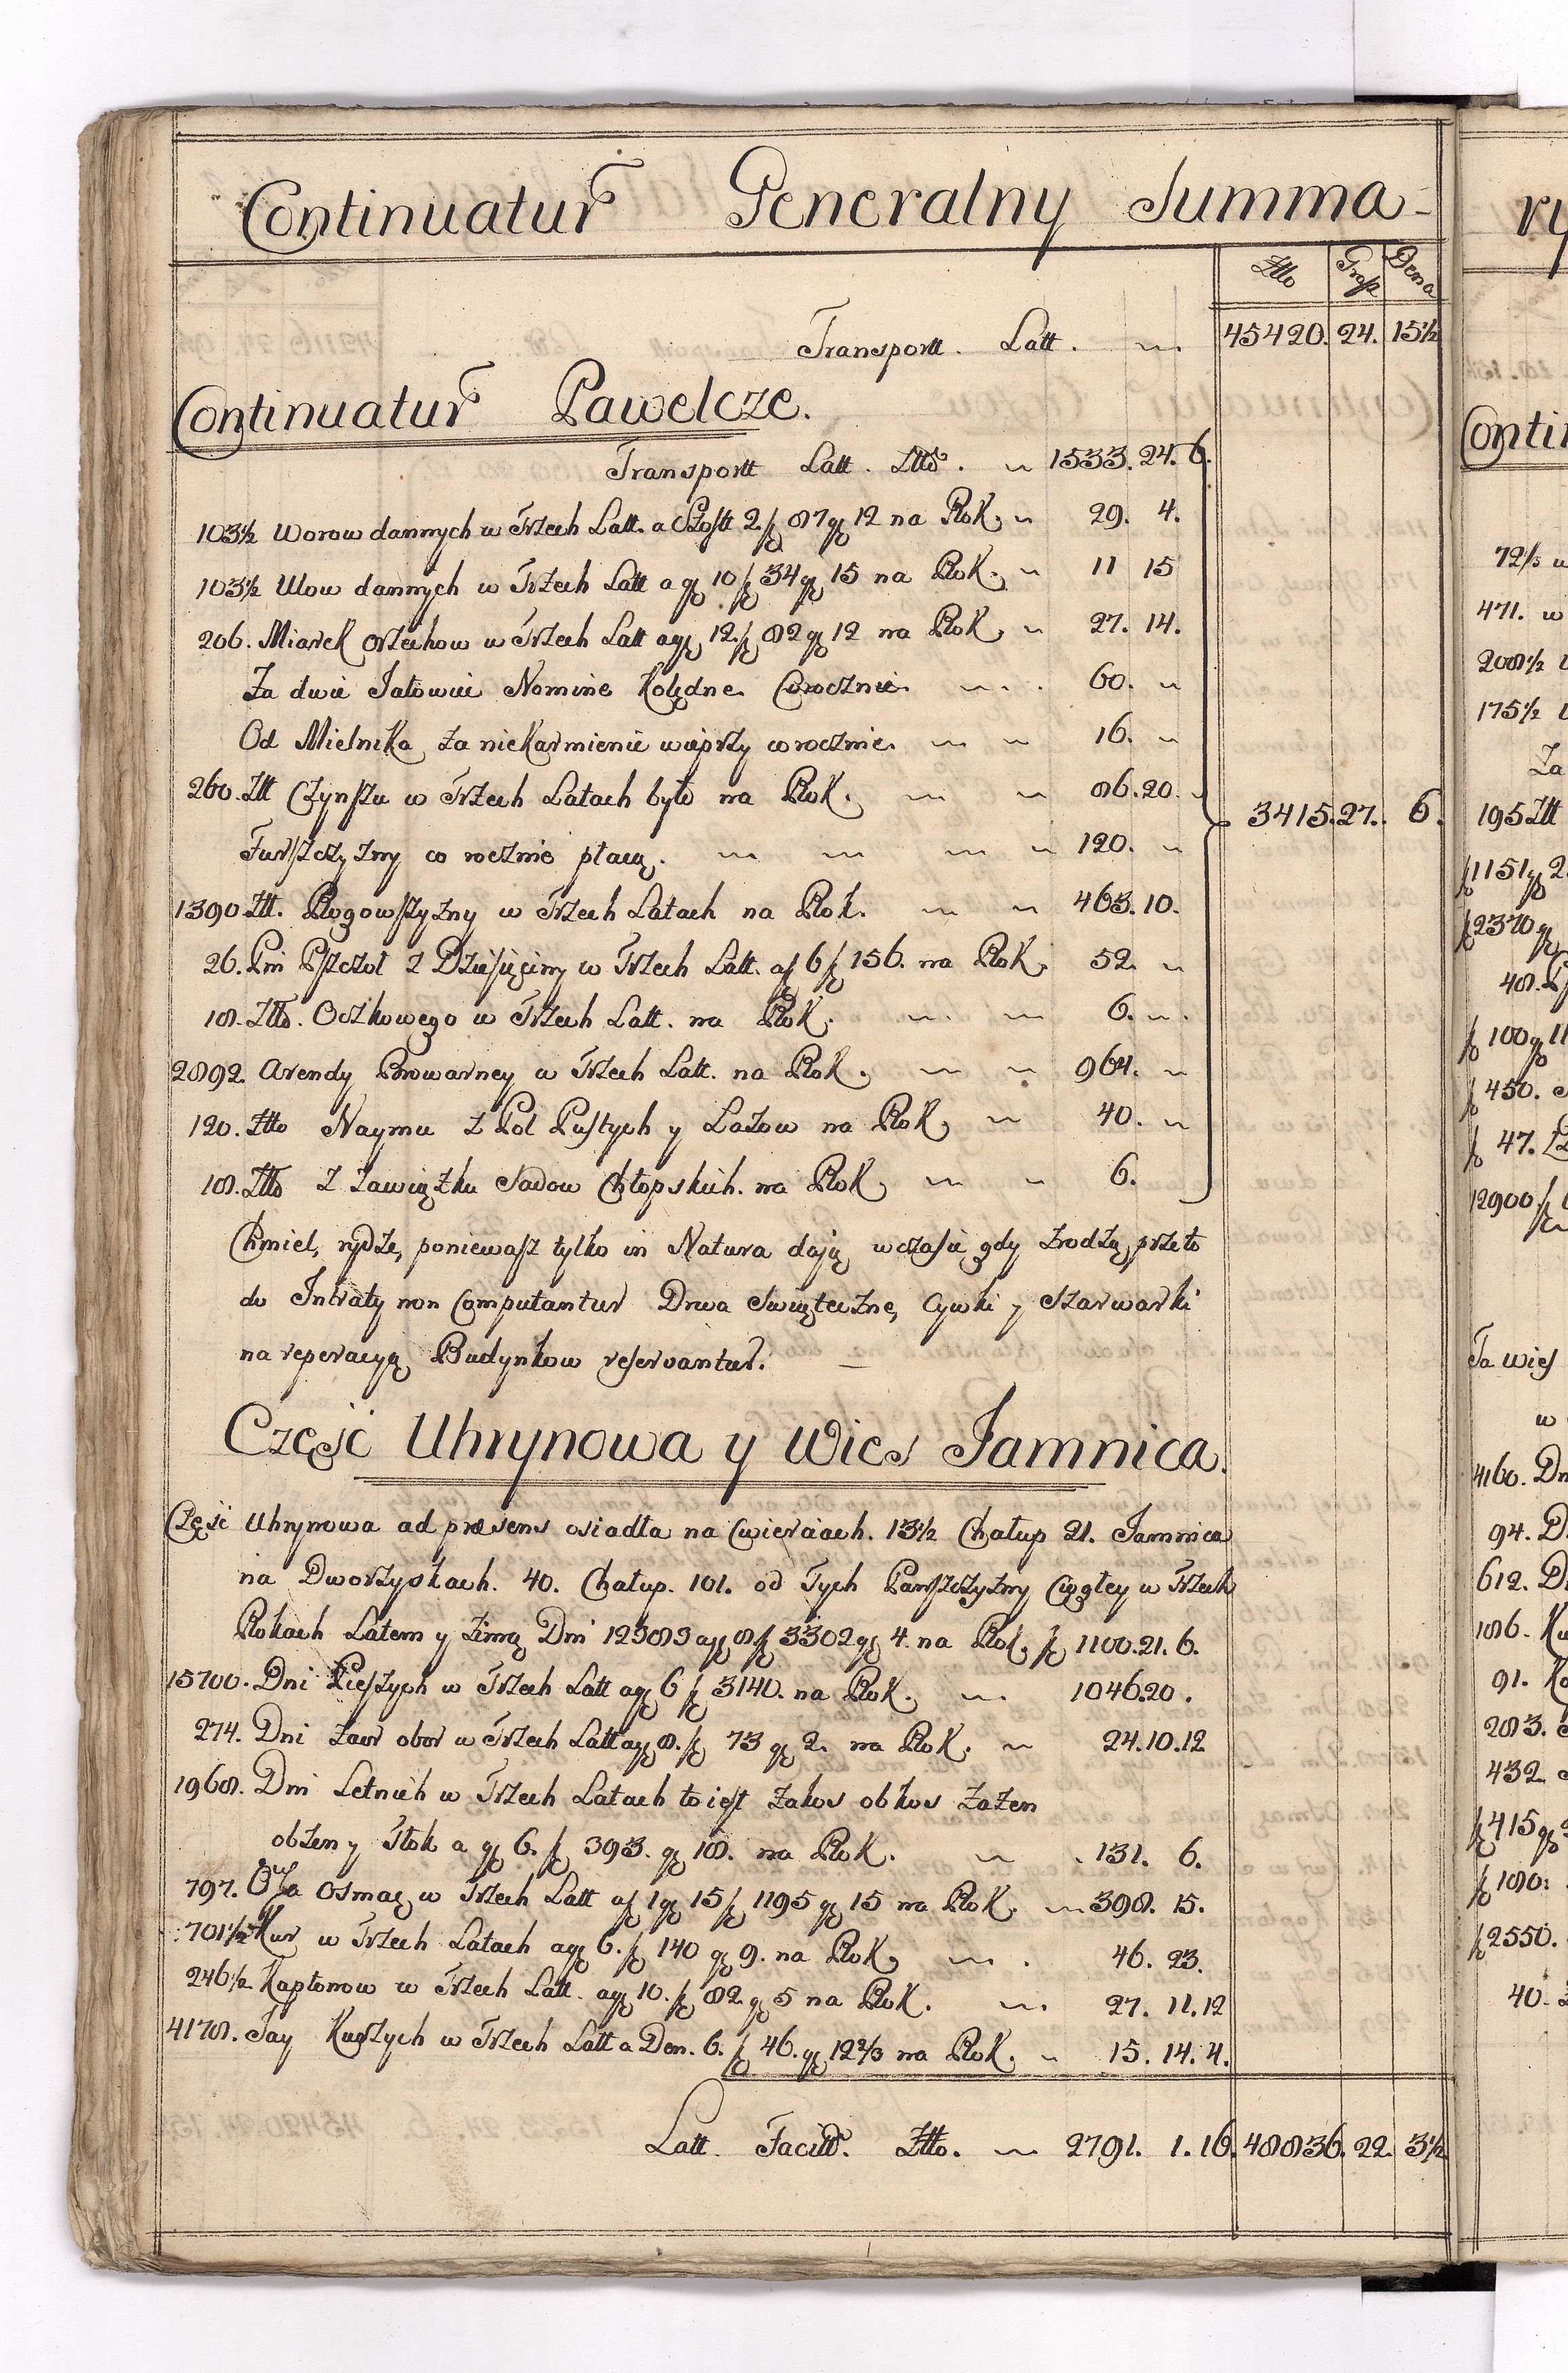 Continuatur Generalny Summa-
Złło Grosz Dena
Transportt. Latt. 45420. 24. 15½
Continuatur Pawelcze.
Transportt Latt. Złło. 1533. 24. 6.
103½ Worow dannych w Trzech Latt. a Szostt 2. f 87 g 12 na Rok, 29. 4.
103½ Ulow dannych w Trzech Latt a g 10 f 34 g 15 na Rok. 11 15
206. Miarek orzechow w Trzech Latt a g 12. f 82 g 12 na Rok, 27. 14.
Za dwie Jatowice Nomine Kolędne Corocznie. 60.
Od Mielnika za niekarmienie wieprzy corocznie. 16.
260. Złł Czynszu w Trzech Latach było na Rok. 86. 20.
Furszczyzny co rocznie płacą. 120.
3415. 27. 6.
1390 Złł. Rogowszyzny w Trzech Latach na Rok. 463. 10.
26. Pni Pszczoł z Dziesięciny w Trzech Latt. a f 6 f 156. na Rok. 52.
18. Złło. Oczkowego w Trzech Latt. na Rok. 6.
2892. Arendy Browarney w Trzech Latt. na Rok. 964.
120. Złło Naymu z Pol Pustych y Lazow na Rok, 40.
18. Złło z zawiązku Sadow Chłopskich. na Rok, 6.
Chmiel, rydze, poniewasz tylko in Natura dają wczasie gdy zrodzą, przeto
do Intraty non Computantur Drwa Swiąteczne, Cywki y Szarwarki
na reperacyą Budynkow reservantur.
Częsć Uhrynowa y Wies Jamnica.
Częsć Uhrynowa ad præsens osiadła na Cwierciach. 13½ Chałup 21. Jamnica
na Dworzyskach. 40. Chałup. 101. od Tych Panszczyzny Ciągłey w Trzech
Rokach Latem y zimą Dni 12383 a g 8 f 3302 g 4. na Rok. f 1100. 21. 6.
15700. Dni Pieszych w Trzech Latt a g 6 f 3140. na Rok. 1046. 20.
274. Dni zaor obor w Trzech Latt a g 8. f 73 g 2. na Rok. 24. 10. 12
1968. Dni Letnich w Trzech Latach to iest zakos obkos zazen
obzen y Tłok a g 6. f 393. g 18. na Rok. 131. 6.
797. Osmac w Trzech Latt a f 1 g 15 f 1195 g 15 na Rok. 398. 15.
701½ Kur w Trzech Latach a g 6. f 140 g 9. na Rok, 46. 23.
246½ Kapłonow w Trzech Latt. a g 10. f 82 g 5 na Rok. 27. 11. 12
4178. Jay Kurzych w Trzech Latt a Den. 6. f 46. g 12⅔ na Rok. 15. 14. 4.
Latt. Facitt. Złło. 2791. 1. 16. 48836. 22. 3½